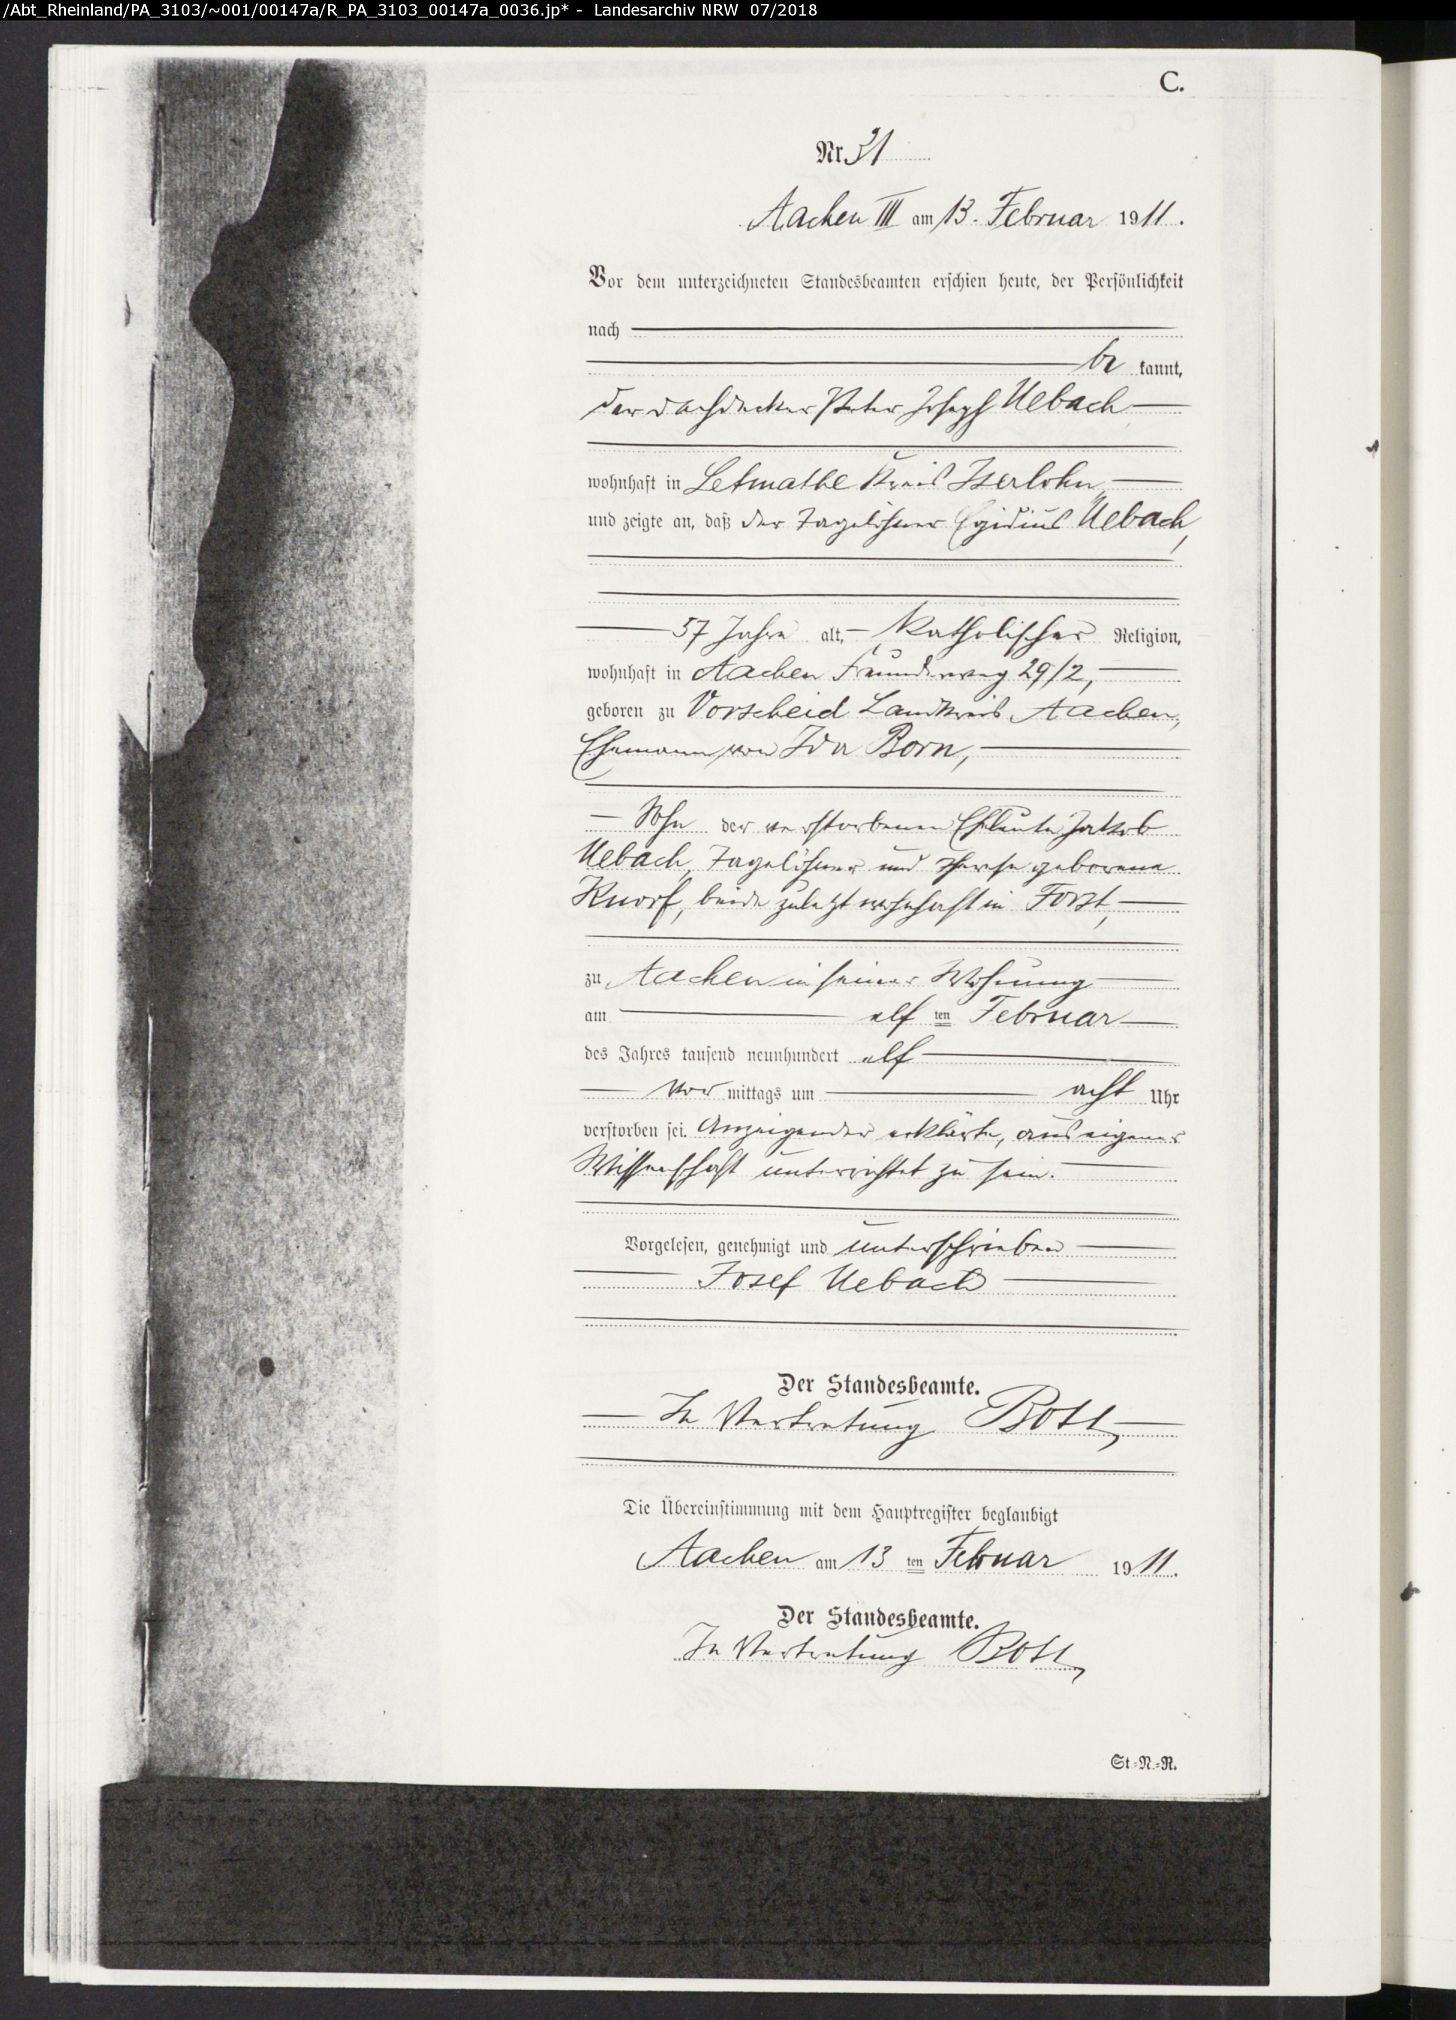 /Abt_Rheinland/PA_3103/~001/00147a/R_PA_3103_00147a_0036.jp* - Landesarchiv NRW 07/2018
C.
Nr. 31
Aachen III am 13. Februar 1911.
Vor dem unterzeichneten Standesbeamten erschien heute, der Persönlichkeit
nach
be kannt,
der Dachdecker Peter Joseph Uebach
wohnhaft in Letmathe Kreis Iserlohn
und zeigte an, daß der Tagelöhner Egidius Uebach,
57 Jahre alt, katholischer Religion,
wohnhaft in Aachen 29/2,
geboren zu Vorscheid Landkreis Aachen,
Ehemann von Ida Born,
Sohn der verstorbenen Eheleute Jakob
Uebach, Tagelöhner und Therese geborene
Knorf, beide zuletzt wohnhaft in Forst,
zu Aachen in seiner Wohnung
am elf ten Februar
des Jahres tausend neunhundert elf
vor mittags um acht Uhr
verstorben sei. Anzeigender erklärte, aus eigener
Wissenschaft unterrichtet zu sein.
Vorgelesen, genehmigt und unterschrieben
Josef Uebach
Der Standesbeamte.
In Vertretung
Die Übereinstimmung mit dem Hauptregister beglaubigt
Aachen am 13 ten Februar 1911.
Der Standesbeamte.
In Vertretung
St.-N.-R.